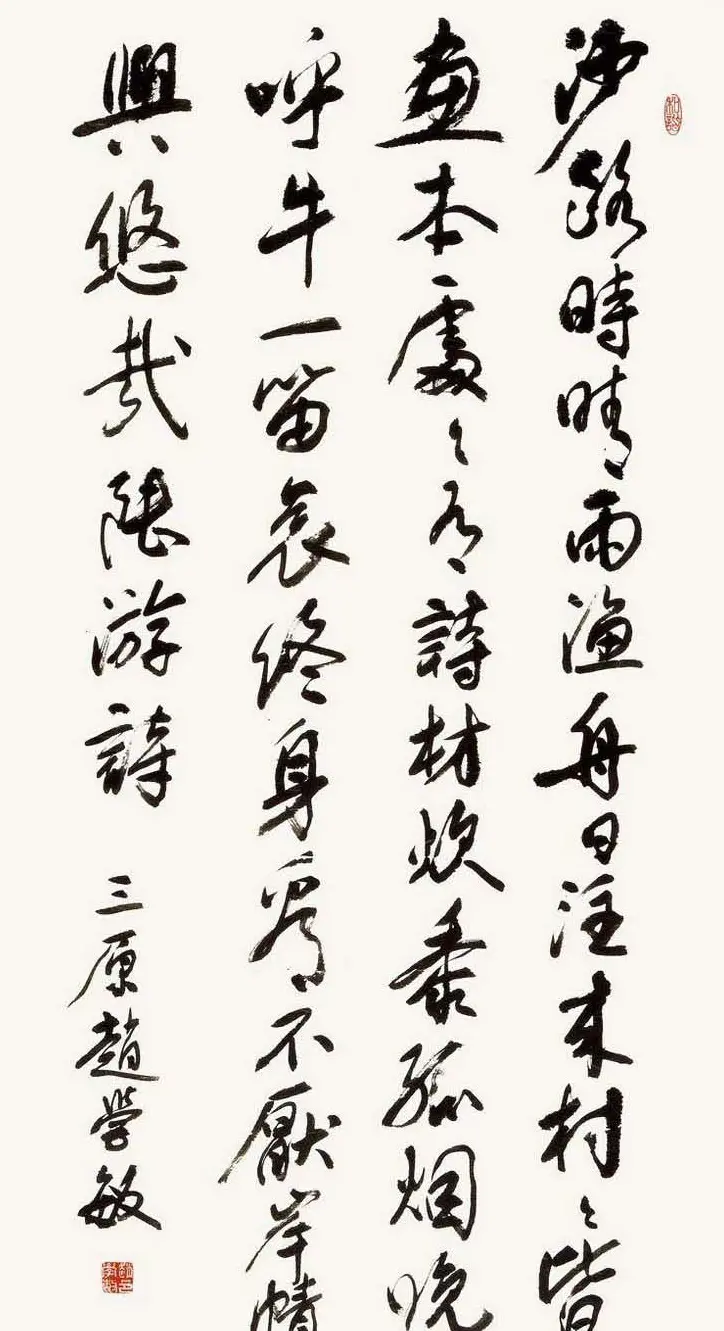 沙路時晴雨漁舟日往来村々皆
畫本處々有詩材炊黍孤烟晚
呼牛一笛哀終身看不厭岸幘
興悠哉陸游詩 三原趙學敏